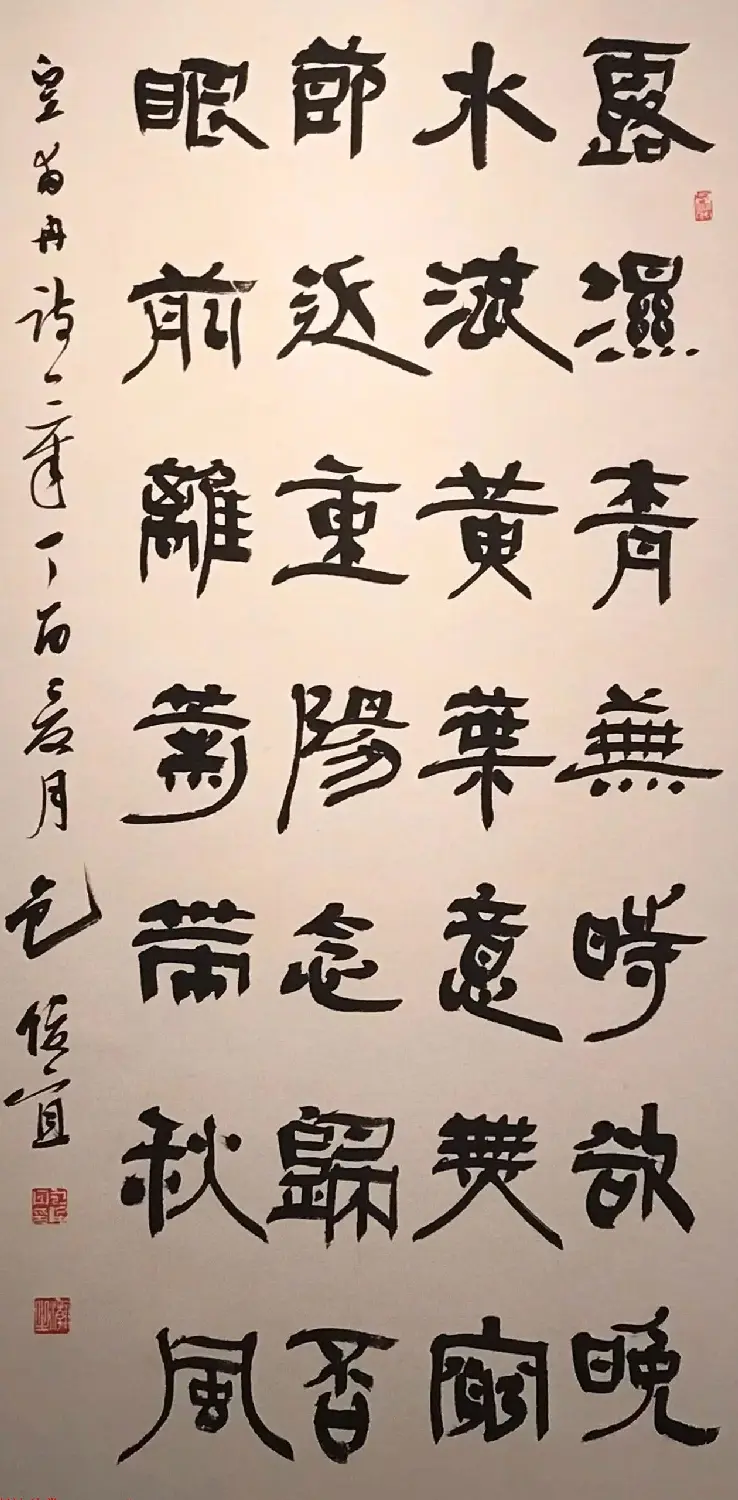 露濕青蕪時欲晚
水流黃葉意無窮
節近重陽念歸否
眼前籬菊帶秋風
皇甫冉詩一章丁酉夏月包俊宜